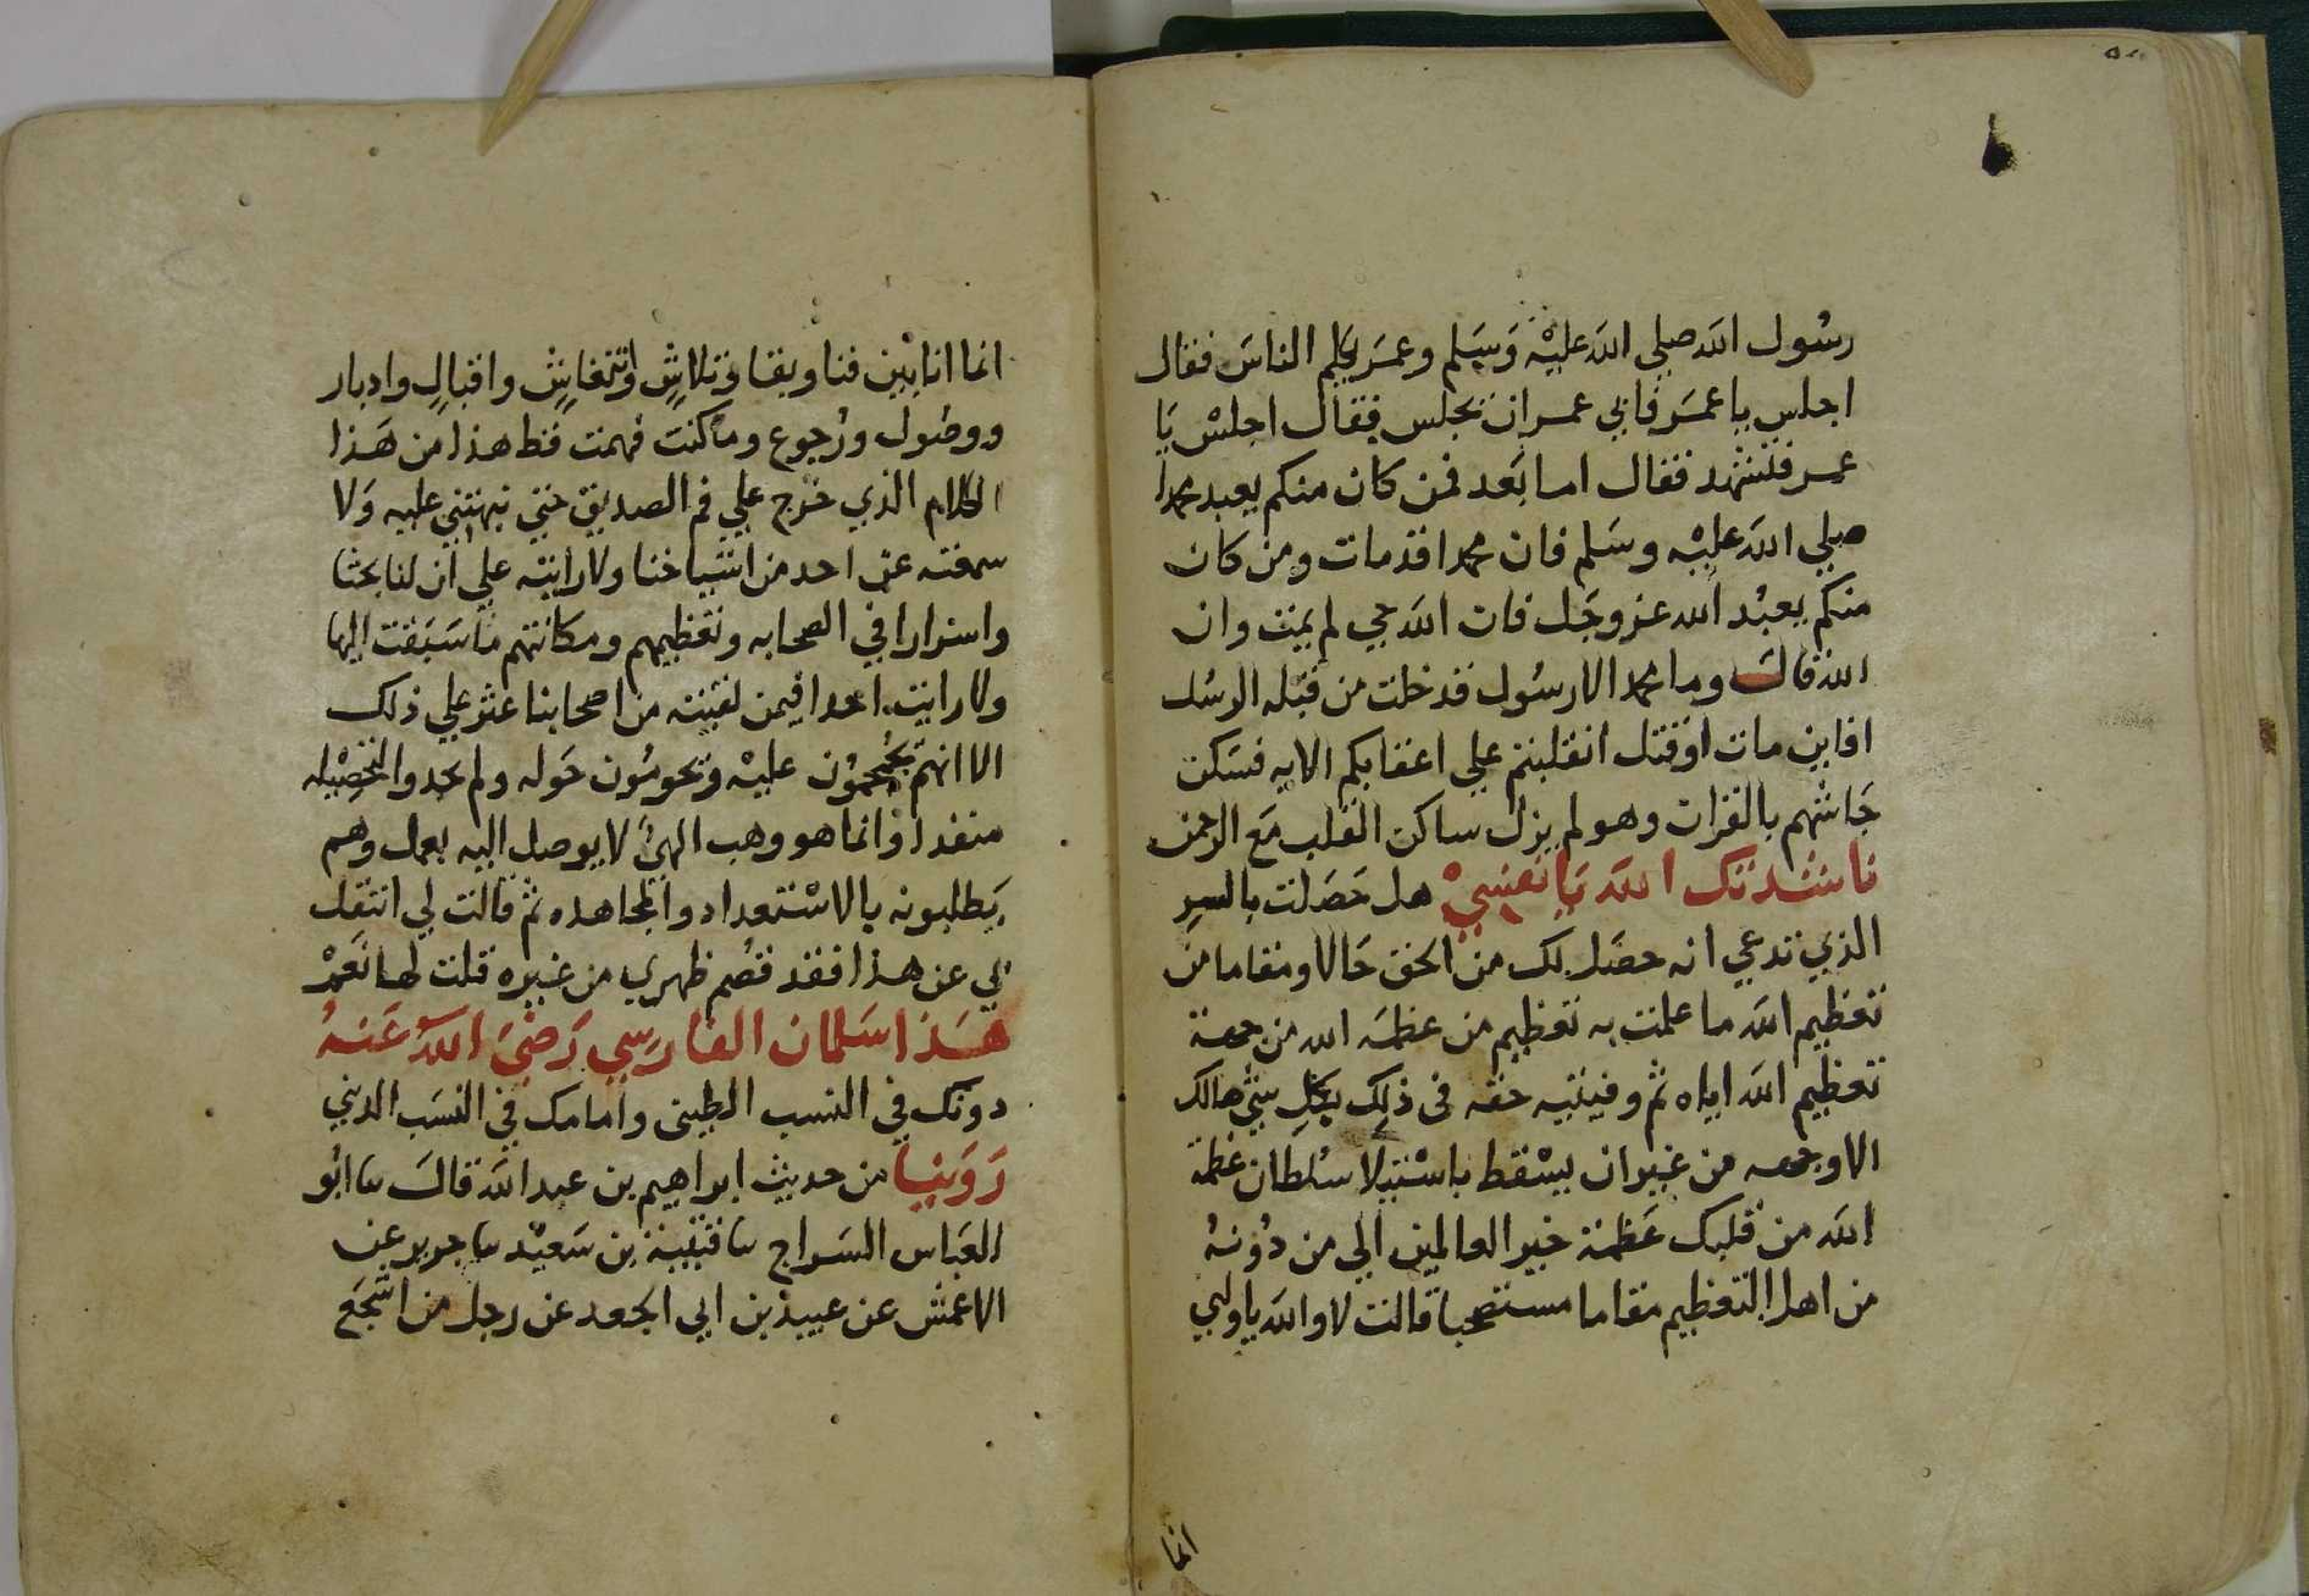 رسُول الله صلي الله عليْه وَسَلم وعمَر يكلم الناسَ فقال
اجلس يا عمَر فابي عمر ان يجلس فقال اجلسْ يَا
عمر فتشهد فقال اما بَعد فمن كان منكم يعبد محمدا
صلي الله عليْه وسَلم فان محمدا قد مات ومن كان
منكم يعبُد الله عز وجَل فان الله حي لم يمَت وان
الله قالَ وما محمد الا رسُول قد خلت من قبله الرسُل
افاين مات او قتل انقلبتم علي اعقابكم الايه فسَكن
جَاشهم بالقران وهو لم يزل ساكن القلب مَع الرحمن
ناشدتك الله يَا نفسِيْ هل حَصَلت بالسرِ
الذي تدعي انه حصَل لك من الحق حَالا ومقاما من
تعظيم الله ما علمت به تعظيم من عظمَه الله من جهة
تعظيم الله اياه ثم وفيتيه حقه في ذلِك بكلِ شيءٍ هالك
الا وجهه من غير ان يسْقط باسْتيلا سُلطان عظمة
الله من قلبك عَظمة خير العالمين الي من دُونهُ
من اهل التعظيم مقاما مستصحبا قالت لا والله يا ولي
انما
انما انا بيْن فنا وبقا وتلاشٍ وانتعاشٍ واقبالٍ وادبار
ووصُول ورُجوع وما كنت فهمت قط هذا من هَذا
الكلام الذي خرَج علي فم الصديق حتي نبهتني عليه وَلا
سمعته عن احد من اشياخنا ولا رايته علي ان لنا بحثا
واسرارا في الصحابه وتعظيمهم ومكانتهم ما سَبَقت اليها
ولا رايت احدا فيمن لقيته من اصحابنا عثر علي ذلك
الا انهم يحُومُون عليْه وَيحومُون حَوله ولم يجدوا لتحصِيْله
منفدا وانما هو وهب الهيٌ لا يوصل اليه بعمل وهم
يَطلبونه بالاسْتعداد والمجاهده ثم قالت لي انتقل
بي عن هذا فقد قصم ظهري من غيره قلت لها نَعَمْ
هَذا سَلمان الفارسِي رَضيَ اللهُ عَنهُ
دونك في النسب الطيني وامامك في النسَب الديني
رَوَينا من حديث ابراهيم بن عبد الله قالَ نا ابُو
العَباس السَراج نا قتيبة بن سَعيْد نا جرير عن
الاعمش عن عبيد بن ابي الجعد عن رجل من اشجَع